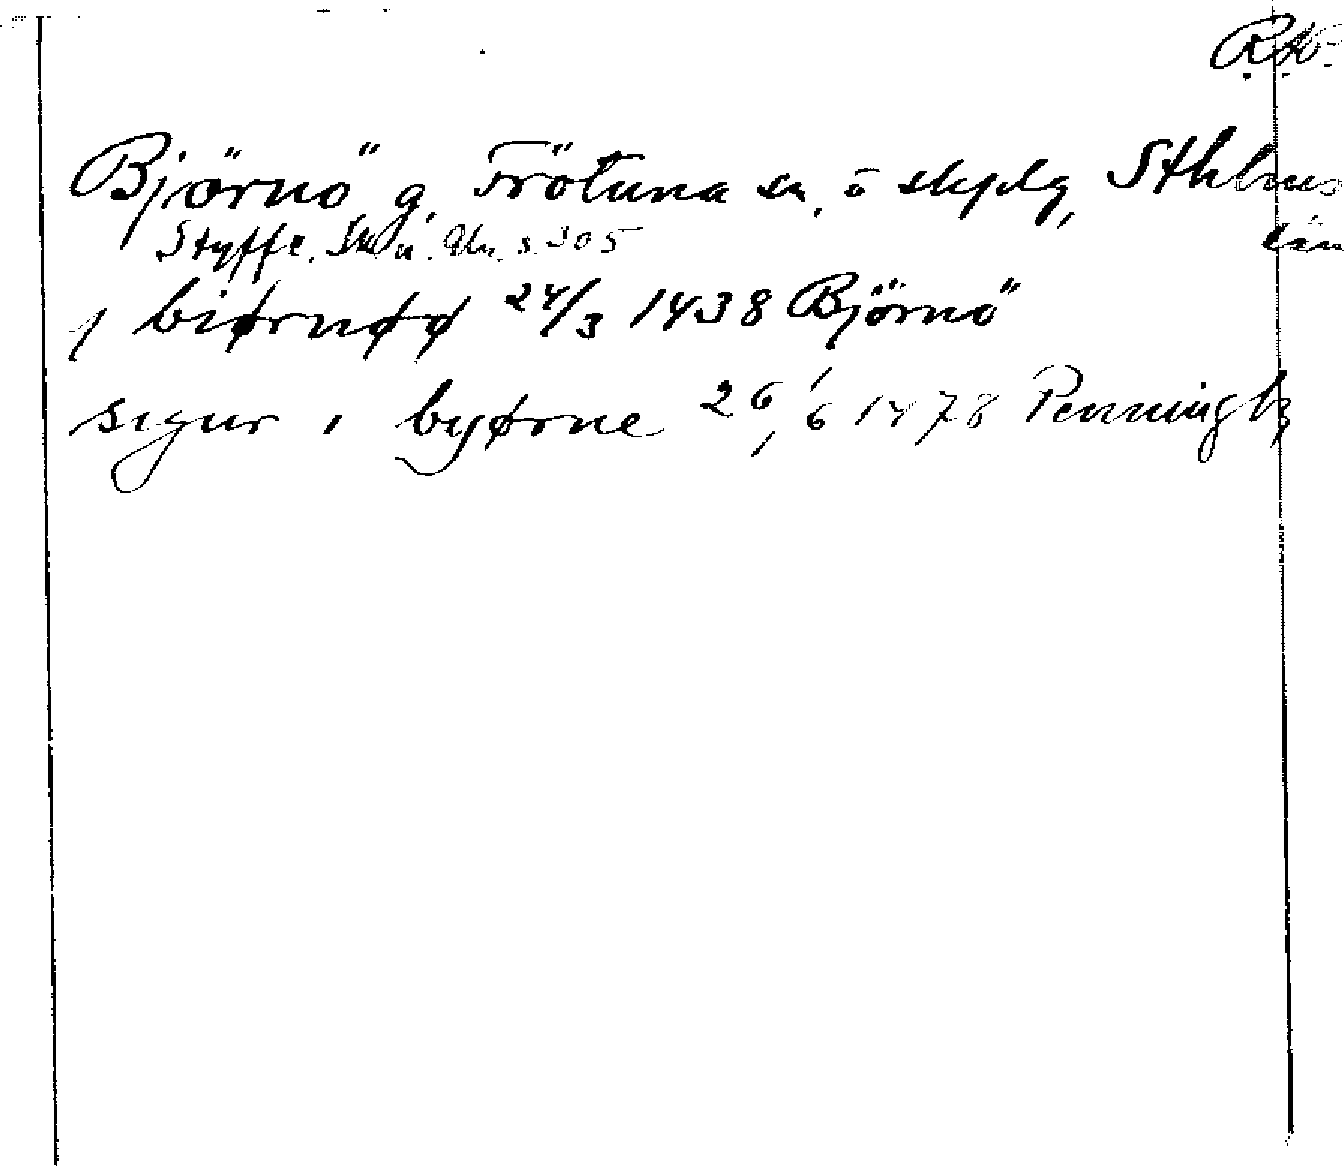 R.A.
Björnö g. Frötuna sn, ö skplg, Sthlms
län
Styffe. Sk. u. Un. s. 305
j biørnøø 24/3 1438 Björnö
sigur i byørne 26/6 1478 Penningby